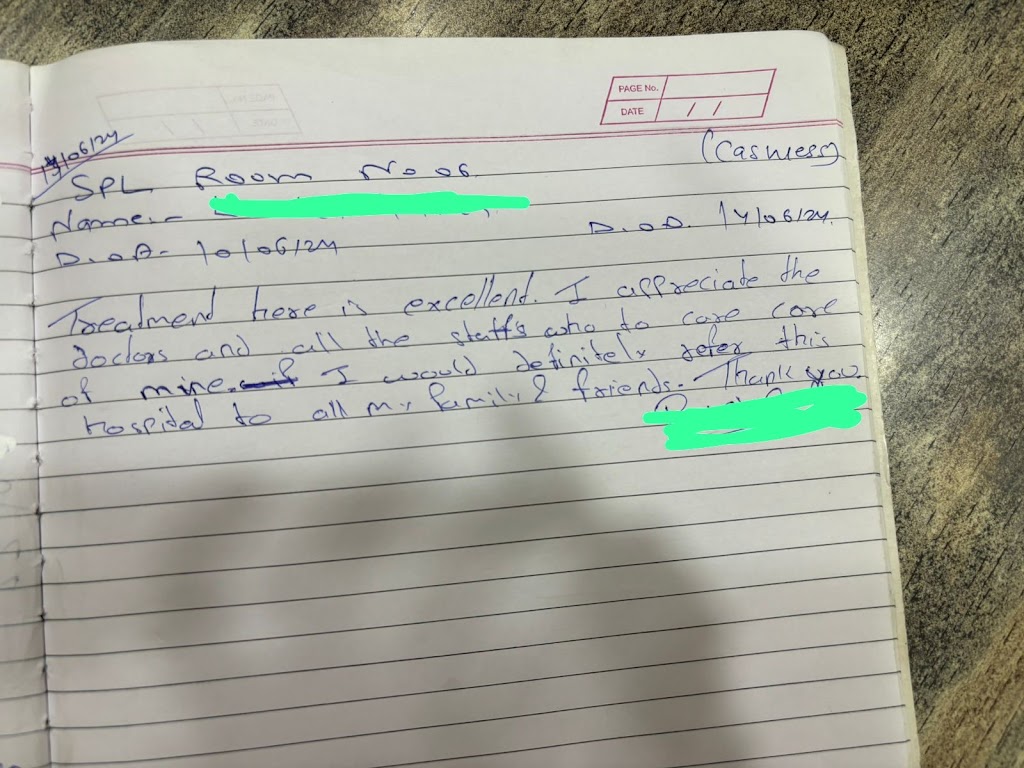 PAGE No.
DATE / /
14/06/24
(Cashless)
SPL Room No 06
Name:-
D.O.A- 10/06/24 D.O.D. 14/06/24
Treatment here is excellent. I appreciate the
doctors and all the staff's who to care care
of mine. I would definitely refer this
hospital to all my family & friends. Thank you.